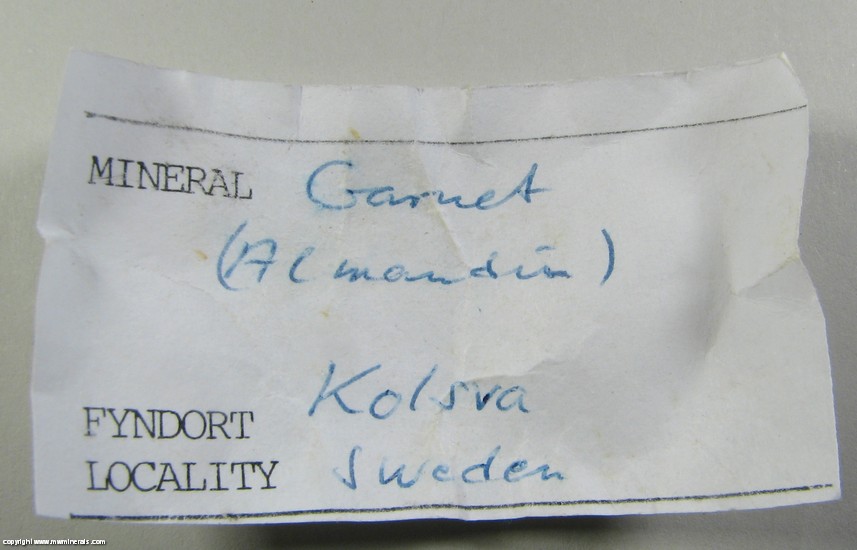 MINERAL Garnet
(Almandin)
Kolsva
FYNDORT
LOCALITY Sweden
copyright www.mwminerals.com